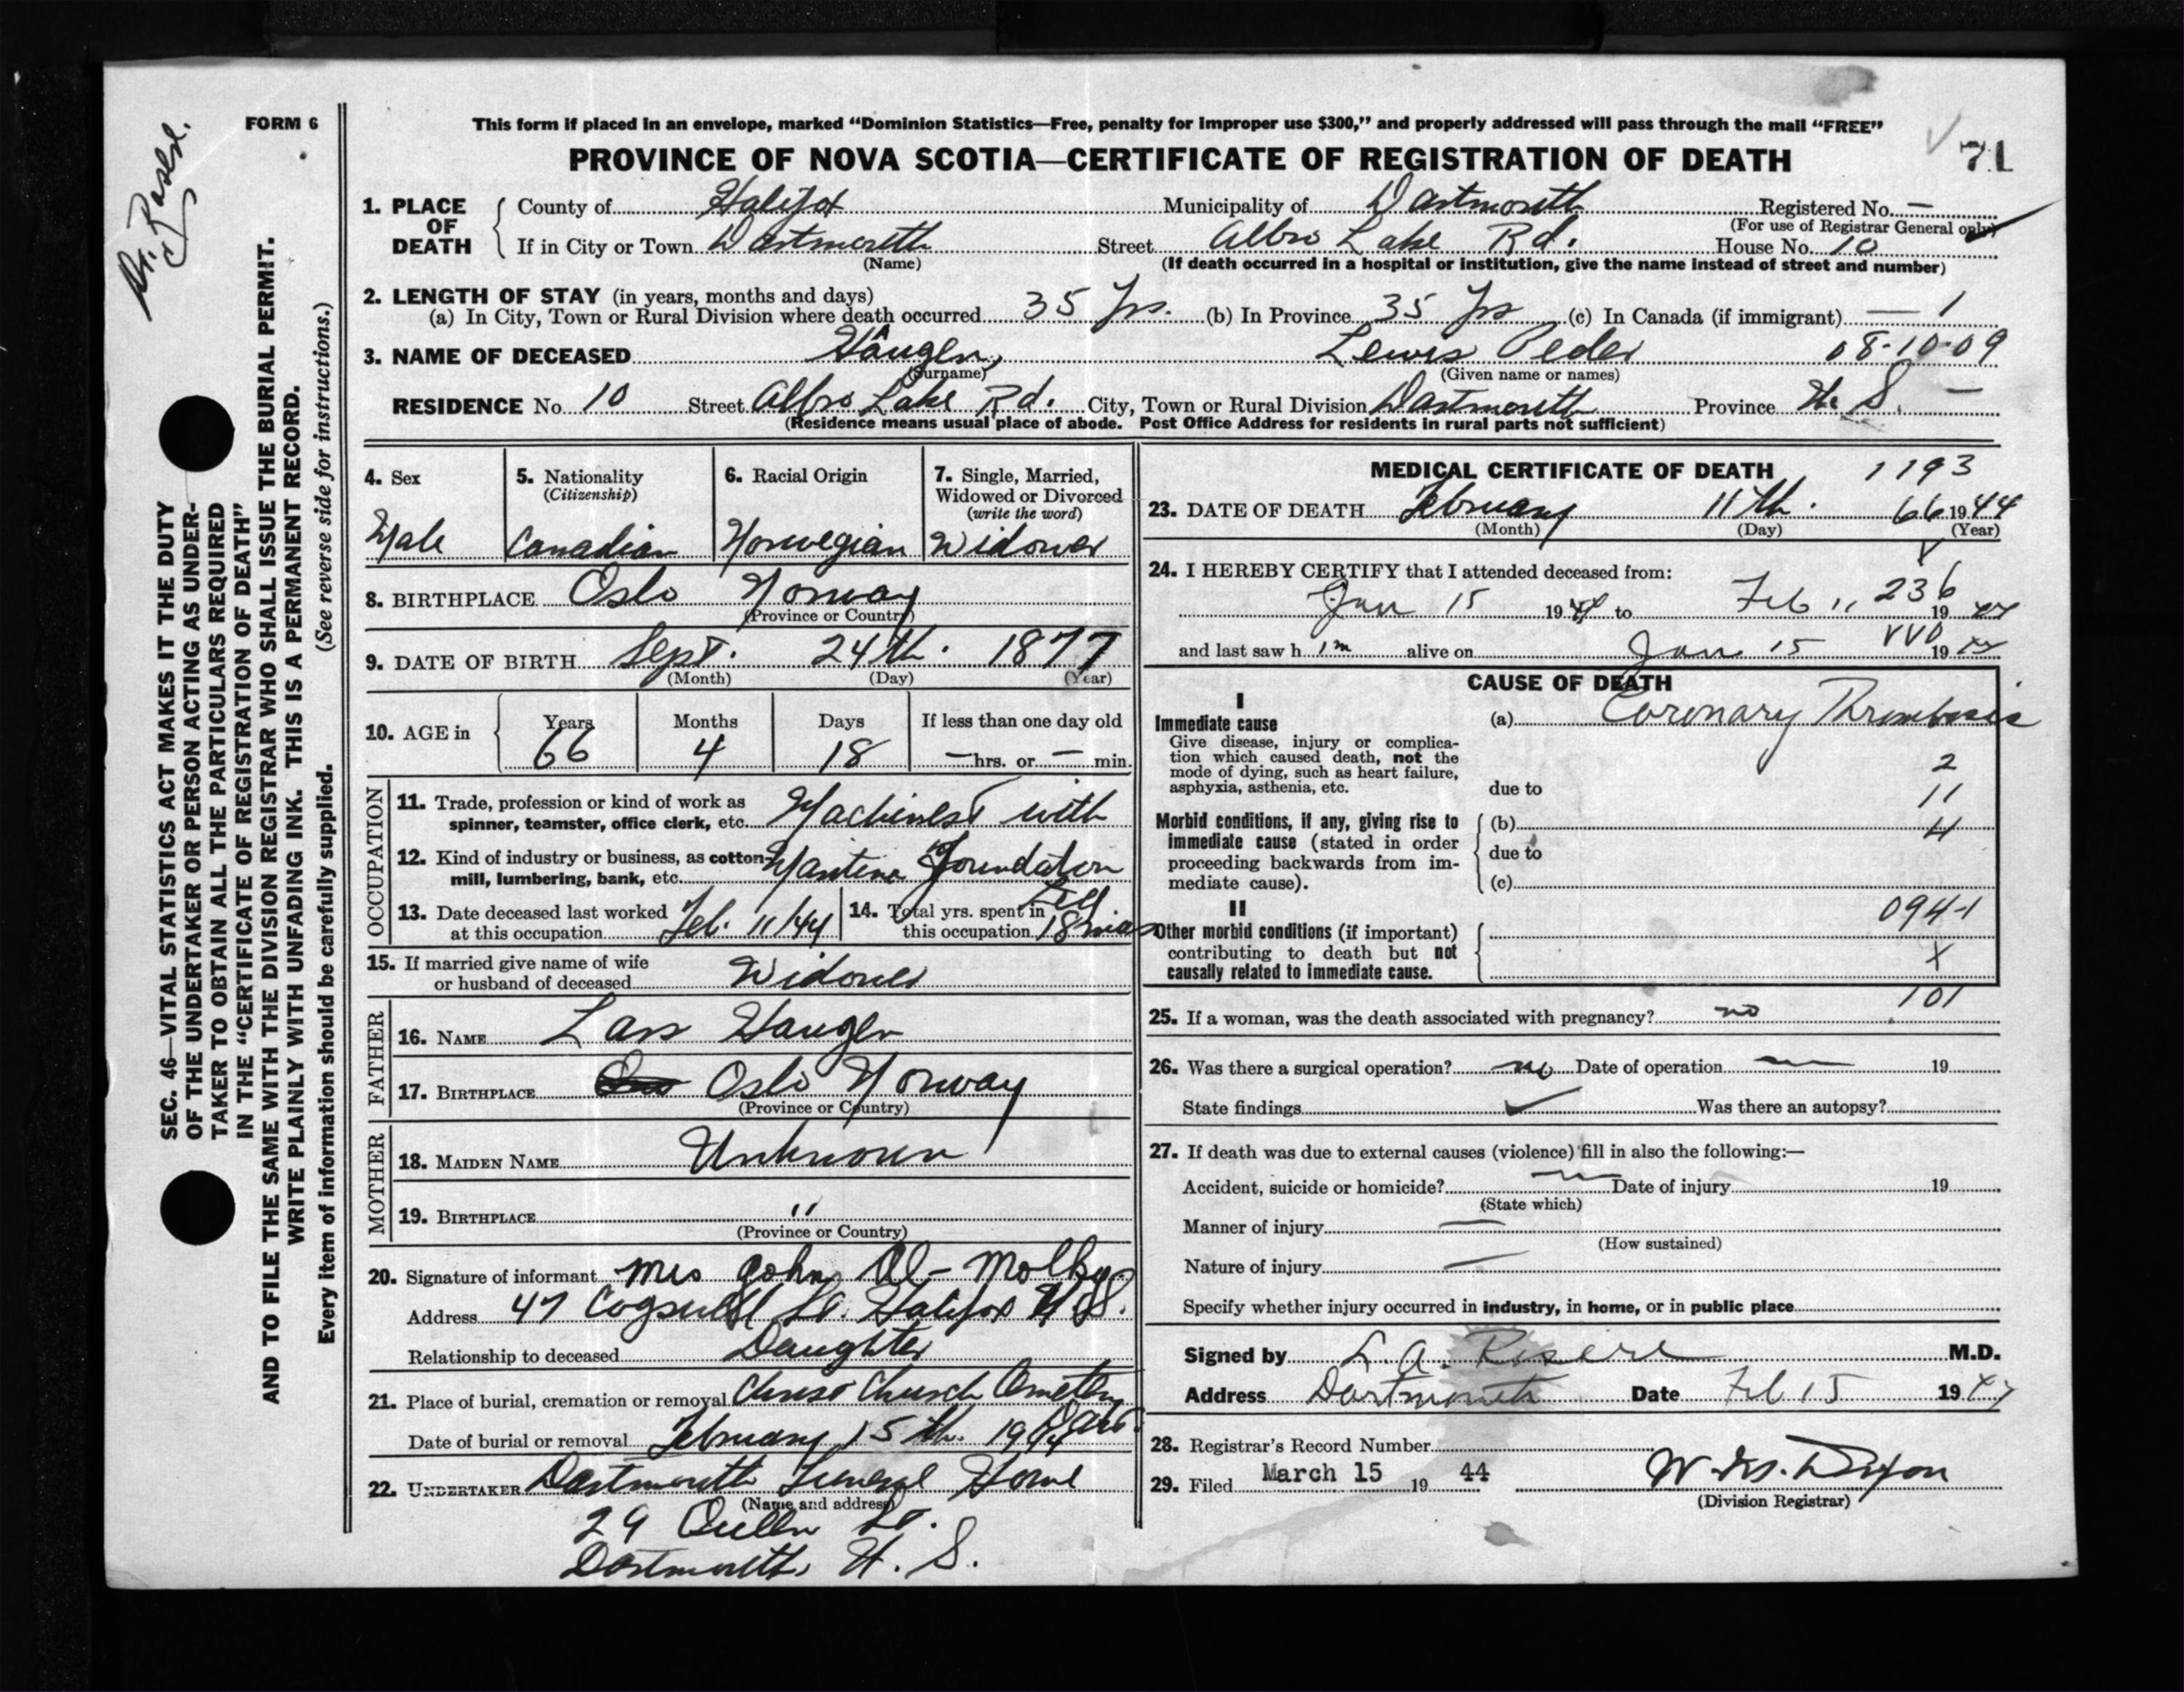 FORM 6
This form if placed in an envelope, marked “Dominion Statistics—Free, penalty for improper use $300,” and properly addressed will pass through the mail “FREE”
PROVINCE OF NOVA SCOTIA—CERTIFICATE OF REGISTRATION OF DEATH
71
1. PLACE OF DEATH County of Halifax Municipality of Dartmouth Registered No. —
(For use of Registrar General only)
If in City or Town Dartmouth Street Albro Lake Rd. House No. 10
(Name) (If death occurred in a hospital or institution, give the name instead of street and number)
2. LENGTH OF STAY (in years, months and days)
(a) In City, Town or Rural Division where death occurred 35 Yrs. (b) In Province 35 Yrs (c) In Canada (if immigrant) — 1
3. NAME OF DECEASED Haugen, Lewis Peder 08-10-09
(Surname) (Given name or names)
RESIDENCE No. 10 Street Albro Lake Rd. City, Town or Rural Division Dartmouth Province N. S. —
(Residence means usual place of abode. Post Office Address for residents in rural parts not sufficient)
4. Sex
Male
5. Nationality
(Citizenship)
Canadian
6. Racial Origin
Norwegian
7. Single, Married,
Widowed or Divorced
(write the word)
Widower
8. BIRTHPLACE Oslo Norway
(Province or Country)
9. DATE OF BIRTH Sept. 24th. 1877
(Month) (Day) (Year)
10. AGE in Years Months Days If less than one day old
66 4 18 — hrs. or — min.
OCCUPATION
11. Trade, profession or kind of work as
spinner, teamster, office clerk, etc. Machinest with
12. Kind of industry or business, as cotton-
mill, lumbering, bank, etc.
13. Date deceased last worked
at this occupation Feb. 11/44
14. Total yrs. spent in
this occupation 18
15. If married give name of wife
or husband of deceased Widower
FATHER
16. NAME Lars Haugen
17. BIRTHPLACE Oslo Norway
(Province or Country)
MOTHER
18. MAIDEN NAME Unknown
19. BIRTHPLACE "
(Province or Country)
20. Signature of informant Mrs John
Address 47 Cogswell St. Halifax N.S.
Relationship to deceased Daughter
21. Place of burial, cremation or removal Christ Church Cemetery
Date of burial or removal February 15th. 1944
22. UNDERTAKER Dartmouth Funeral Home
(Name and address)
29 Queen St.
Dartmouth, N. S.
MEDICAL CERTIFICATE OF DEATH 1193
23. DATE OF DEATH February 11th. 66 1944
(Month) (Day) (Year)
24. I HEREBY CERTIFY that I attended deceased from:
236
Jan 15 1944 to Feb 11 19 44
and last saw h im alive on Jan 15 19 44
CAUSE OF DEATH
I
Immediate cause (a) Coronary Thrombosis
Give disease, injury or complica-
tion which caused death, not the
mode of dying, such as heart failure,
asphyxia, asthenia, etc. due to
2
11
4
Morbid conditions, if any, giving rise to (b)
immediate cause (stated in order due to
proceeding backwards from im-
mediate cause). (c)
II
094-1
Other morbid conditions (if important)
contributing to death but not
causally related to immediate cause.
X
101
25. If a woman, was the death associated with pregnancy? no
26. Was there a surgical operation? no Date of operation — 19
State findings Was there an autopsy?
27. If death was due to external causes (violence) fill in also the following:—
Accident, suicide or homicide? Date of injury 19
(State which)
Manner of injury —
(How sustained)
Nature of injury —
Specify whether injury occurred in industry, in home, or in public place
Signed by L. A. M.D.
Address Dartmouth Date Feb 15 1944
28. Registrar's Record Number
29. Filed March 15 19 44 Dixon
(Division Registrar)
SEC. 46—VITAL STATISTICS ACT MAKES IT THE DUTY
OF THE UNDERTAKER OR PERSON ACTING AS UNDER-
TAKER TO OBTAIN ALL THE PARTICULARS REQUIRED
IN THE “CERTIFICATE OF REGISTRATION OF DEATH”
AND TO FILE THE SAME WITH THE DIVISION REGISTRAR WHO SHALL ISSUE THE BURIAL PERMIT.
WRITE PLAINLY WITH UNFADING INK. THIS IS A PERMANENT RECORD.
Every item of information should be carefully supplied. (See reverse side for instructions.)